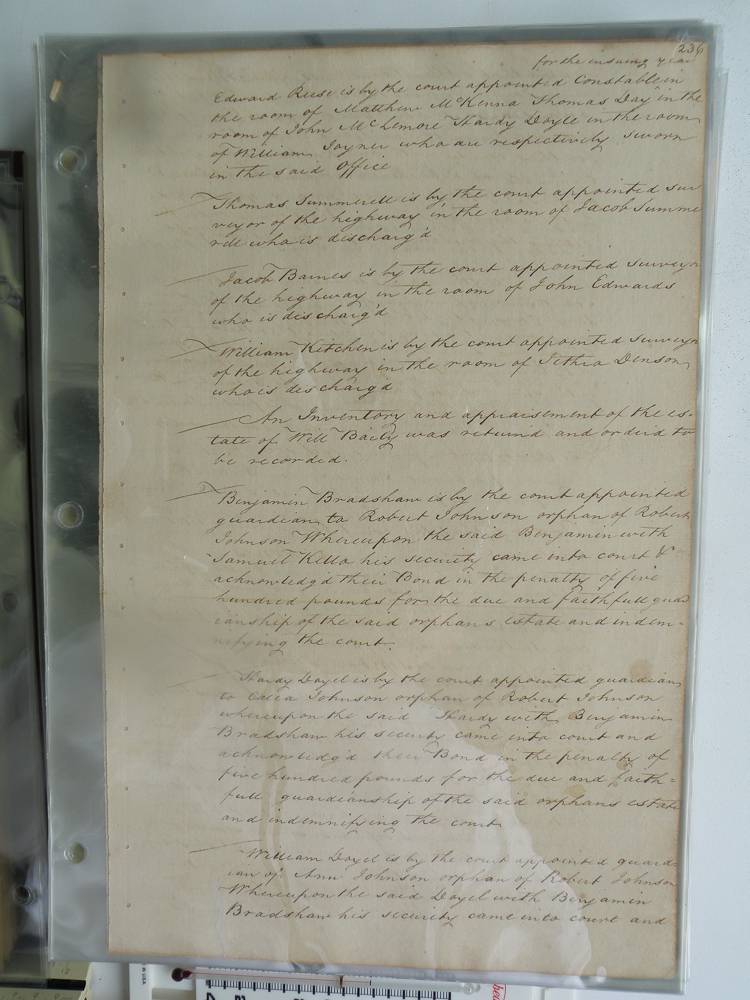 236
for the insuing year
Edward Reese is by the court appointed Constable in
the room of Matthew McKenna Thomas Day in the
room of John McLemore Hardy Doyle in the room
of William Joyner who are respectively sworn
in the said Office
Thomas Summerell is by the court appointed sur
veyor of the highway in the room of Jacob Summe
rell who is discharg'd
Jacob Barnes is by the court appointed surveyor
of the highway in the room of John Edwards
who is discharg'd
William Kitchen is by the court appointed surveyor
of the highway in the room of Jethro Denson
who is discharg'd
An Inventory and appraisement of the es-
tate of Will Baily was returnd and orderd to
be recorded.
Benjamin Bradshaw is by the court appointed
guardian to Robert Johnson orphan of Robert
Johnson Whereupon the said Benjamin with
Samuel Kello his security came into court &
acknowledg'd their Bond in the penalty of five
hundred pounds for the due and faithfull guar
ianship of the said orphans estate and indem-
nifying the court.
Hardy Doyel is by the court appointed guardian
to Celia Johnson orphan of Robert Johnson
whereupon the said Hardy with Benjamin
Bradshaw his security came into court and
acknowledg'd their Bond in the penalty of
five hundred pounds for the due and faith=
full guardianship of the said orphans estate
and indemnifying the court
William Doyel is by the court appointed guard-
ian of Ann Johnson orphan of Robert Johnson
Whereupon the said Doyel with Benjamin
Bradshaw his security came into court and